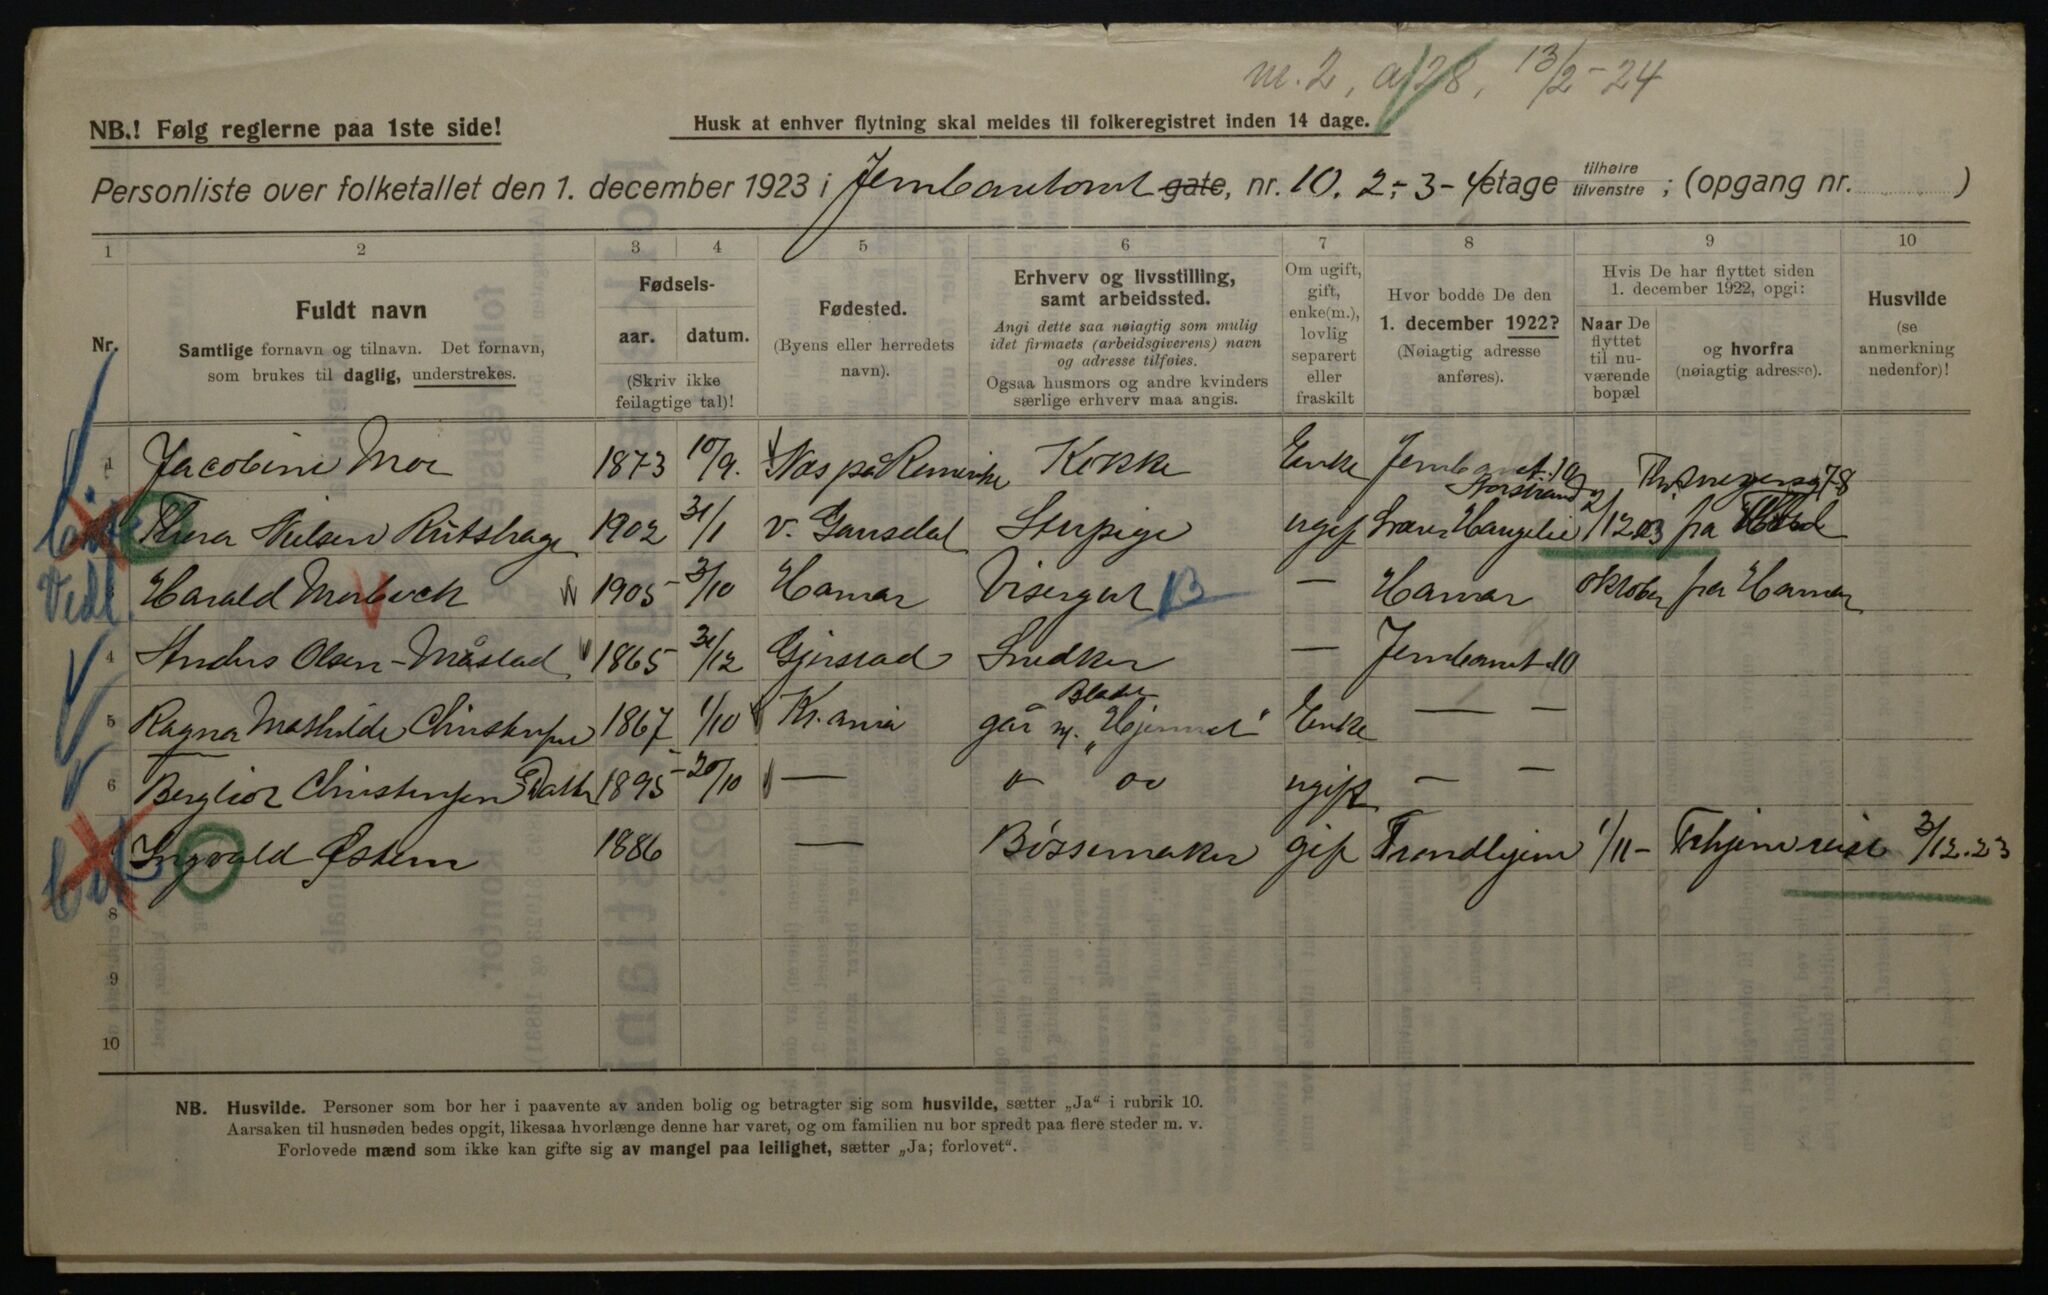 m. 2, a/28, 13/2-24
NB.! Følg reglerne paa 1ste side!
Husk at enhver flytning skal meldes til folkeregistret inden 14 dage.
Personliste over folketallet den 1. december 1923 i Jernbanetorvet gate, nr. 10. 2-3-4 etage tilhøire tilvenstre ; (opgang nr. )
1 2 3 4 5 6 7 8 9 10
Nr.
Fuldt navn
Samtlige fornavn og tilnavn. Det fornavn,
som brukes til daglig, understrekes.
Fødsels-
aar. datum.
(Skriv ikke
feilagtige tal)!
Fødested.
(Byens eller herredets
navn).
Erhverv og livsstilling,
samt arbeidssted.
Angi dette saa nøiagtig som mulig
idet firmaets (arbeidsgiverens) navn
og adresse tilføies.
Ogsaa husmors og andre kvinders
særlige erhverv maa angis.
Om ugift,
gift,
enke(m.),
lovlig
separert
eller
fraskilt
Hvor bodde De den
1. december 1922?
(Nøiagtig adresse
anføres).
Hvis De har flyttet siden
1. december 1922, opgi:
Naar De
flyttet
til nu-
værende
bopæl
og hvorfra
(nøiagtig adresse).
Husvilde
(se
anmerkning
nedenfor)!
1 Jacobine Moe 1873 10/9. Nes på Romerike Kokke Enke Jernbanet. 10
Thora Nielsen 1902 31/1 v. Stupige ugif 2/12.23 fra
Vidl. Harald Morbeck 1905 3/10 Hamar Visergut B — Hamar oktober fra Hamar
4 Anders Olsen-Måstad 1865 31/12 Gjerstad Snedker — Jernbanet. 10
5 Ragna Mathilde Christensen 1867 1/10 Kr.ania går m. Bladet „Hjemmet" Enke — —
6 Bergliot Christensen Datter 1895 20/10 — " " ugift — —
Ingvald Østem 1886 — Bøssemaker gif Trondhjem 1/11 - Trhjem reist 3/12.23
8
9
10
NB. Husvilde. Personer som bor her i paavente av anden bolig og betragter sig som husvilde, sætter „Ja" i rubrik 10.
Aarsaken til husnøden bedes opgit, likesaa hvorlænge denne har varet, og om familien nu bor spredt paa flere steder m. v.
Forlovede mænd som ikke kan gifte sig av mangel paa leilighet, sætter „Ja; forlovet".